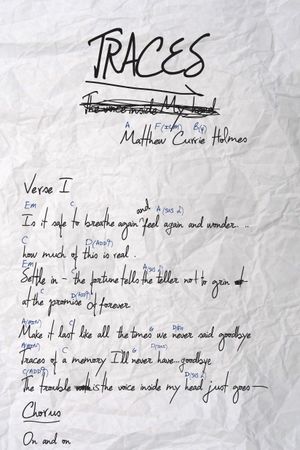 TRACES
The voice inside My head
A F(#11/M) B(4)
Matthew Currie Holmes
Verse I
Em C and A(sus 2)
Is it safe to breathe again feel again and wonder...
C D(ADD9)
how much of this is real.
Em A(sus 2)
Settle in - the fortune tells the teller not to grin
D(ADD9)
at the promise of forever
C G
Make it last like all the times we never said goodbye
C G D(sus)
Traces of a memory I'll never have... goodbye
C(ADD9) G D(sus 2)
The trouble is the voice inside my head just goes—
Chorus
On and on